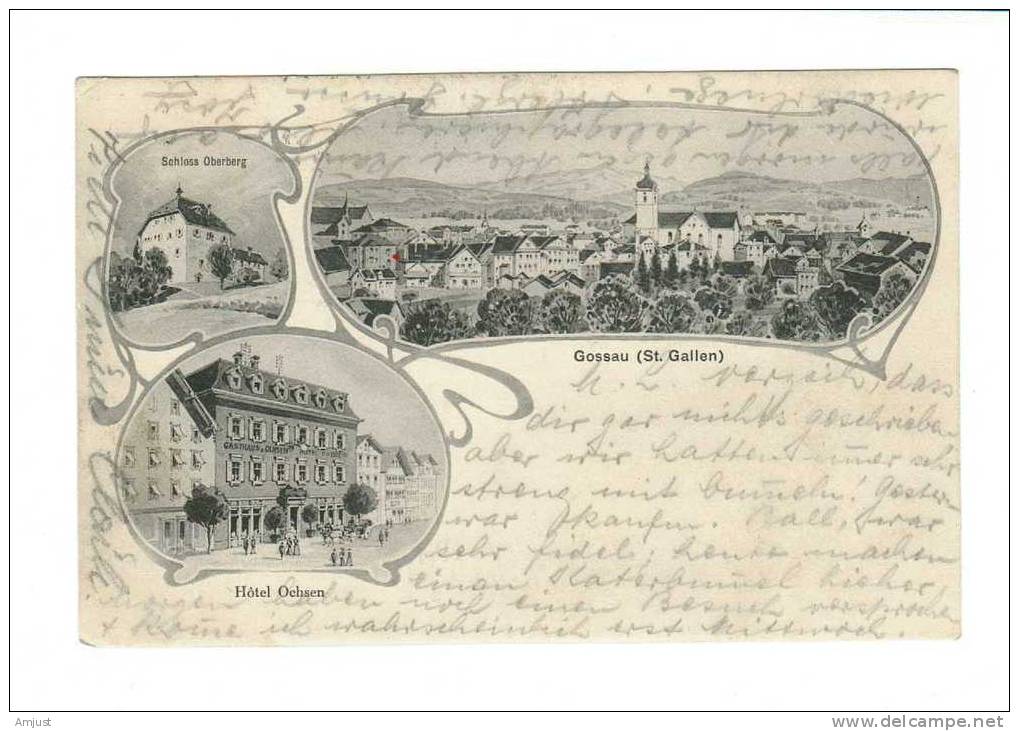 Schloss Oberberg
Gossau (St. Gallen)
GASTHAUS z. OCHSEN
HOTEL
Hôtel Ochsen
M. L. Verzeih, dass
dir gar nichts geschrieben
aber wir hatten immer sehr
streng mit bumeln! Gestern
war Kaufm. Ball, war
sehr fidel; heute machen
einen Katerbummel hieher
Morgen haben noch einen Besuch versprochen
& kome ich wahrscheinlich erst Mittwoch.
würde dir telegraphieren,
falls morgen
Amjust
http://www.delcampe.net